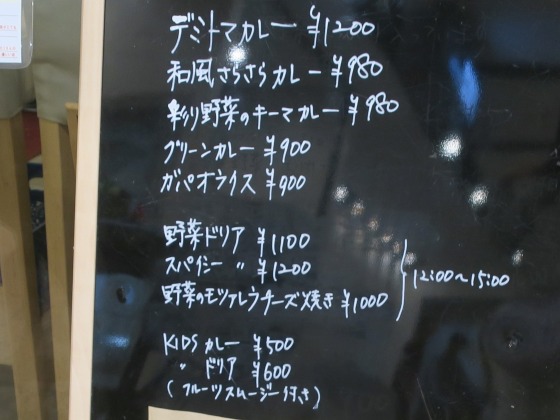 デミトマカレー ¥1200
和風さらさらカレー ¥980
彩り野菜のキーマカレー ¥980
グリーンカレー ¥900
ガパオライス ¥900
野菜ドリア ¥1100
スパイシー 〃 ¥1200
野菜のモッツァレラチーズ焼き ¥1000
12:00~15:00
KIDS カレー ¥500
〃 ドリア ¥600
(フルーツスムージー付き)